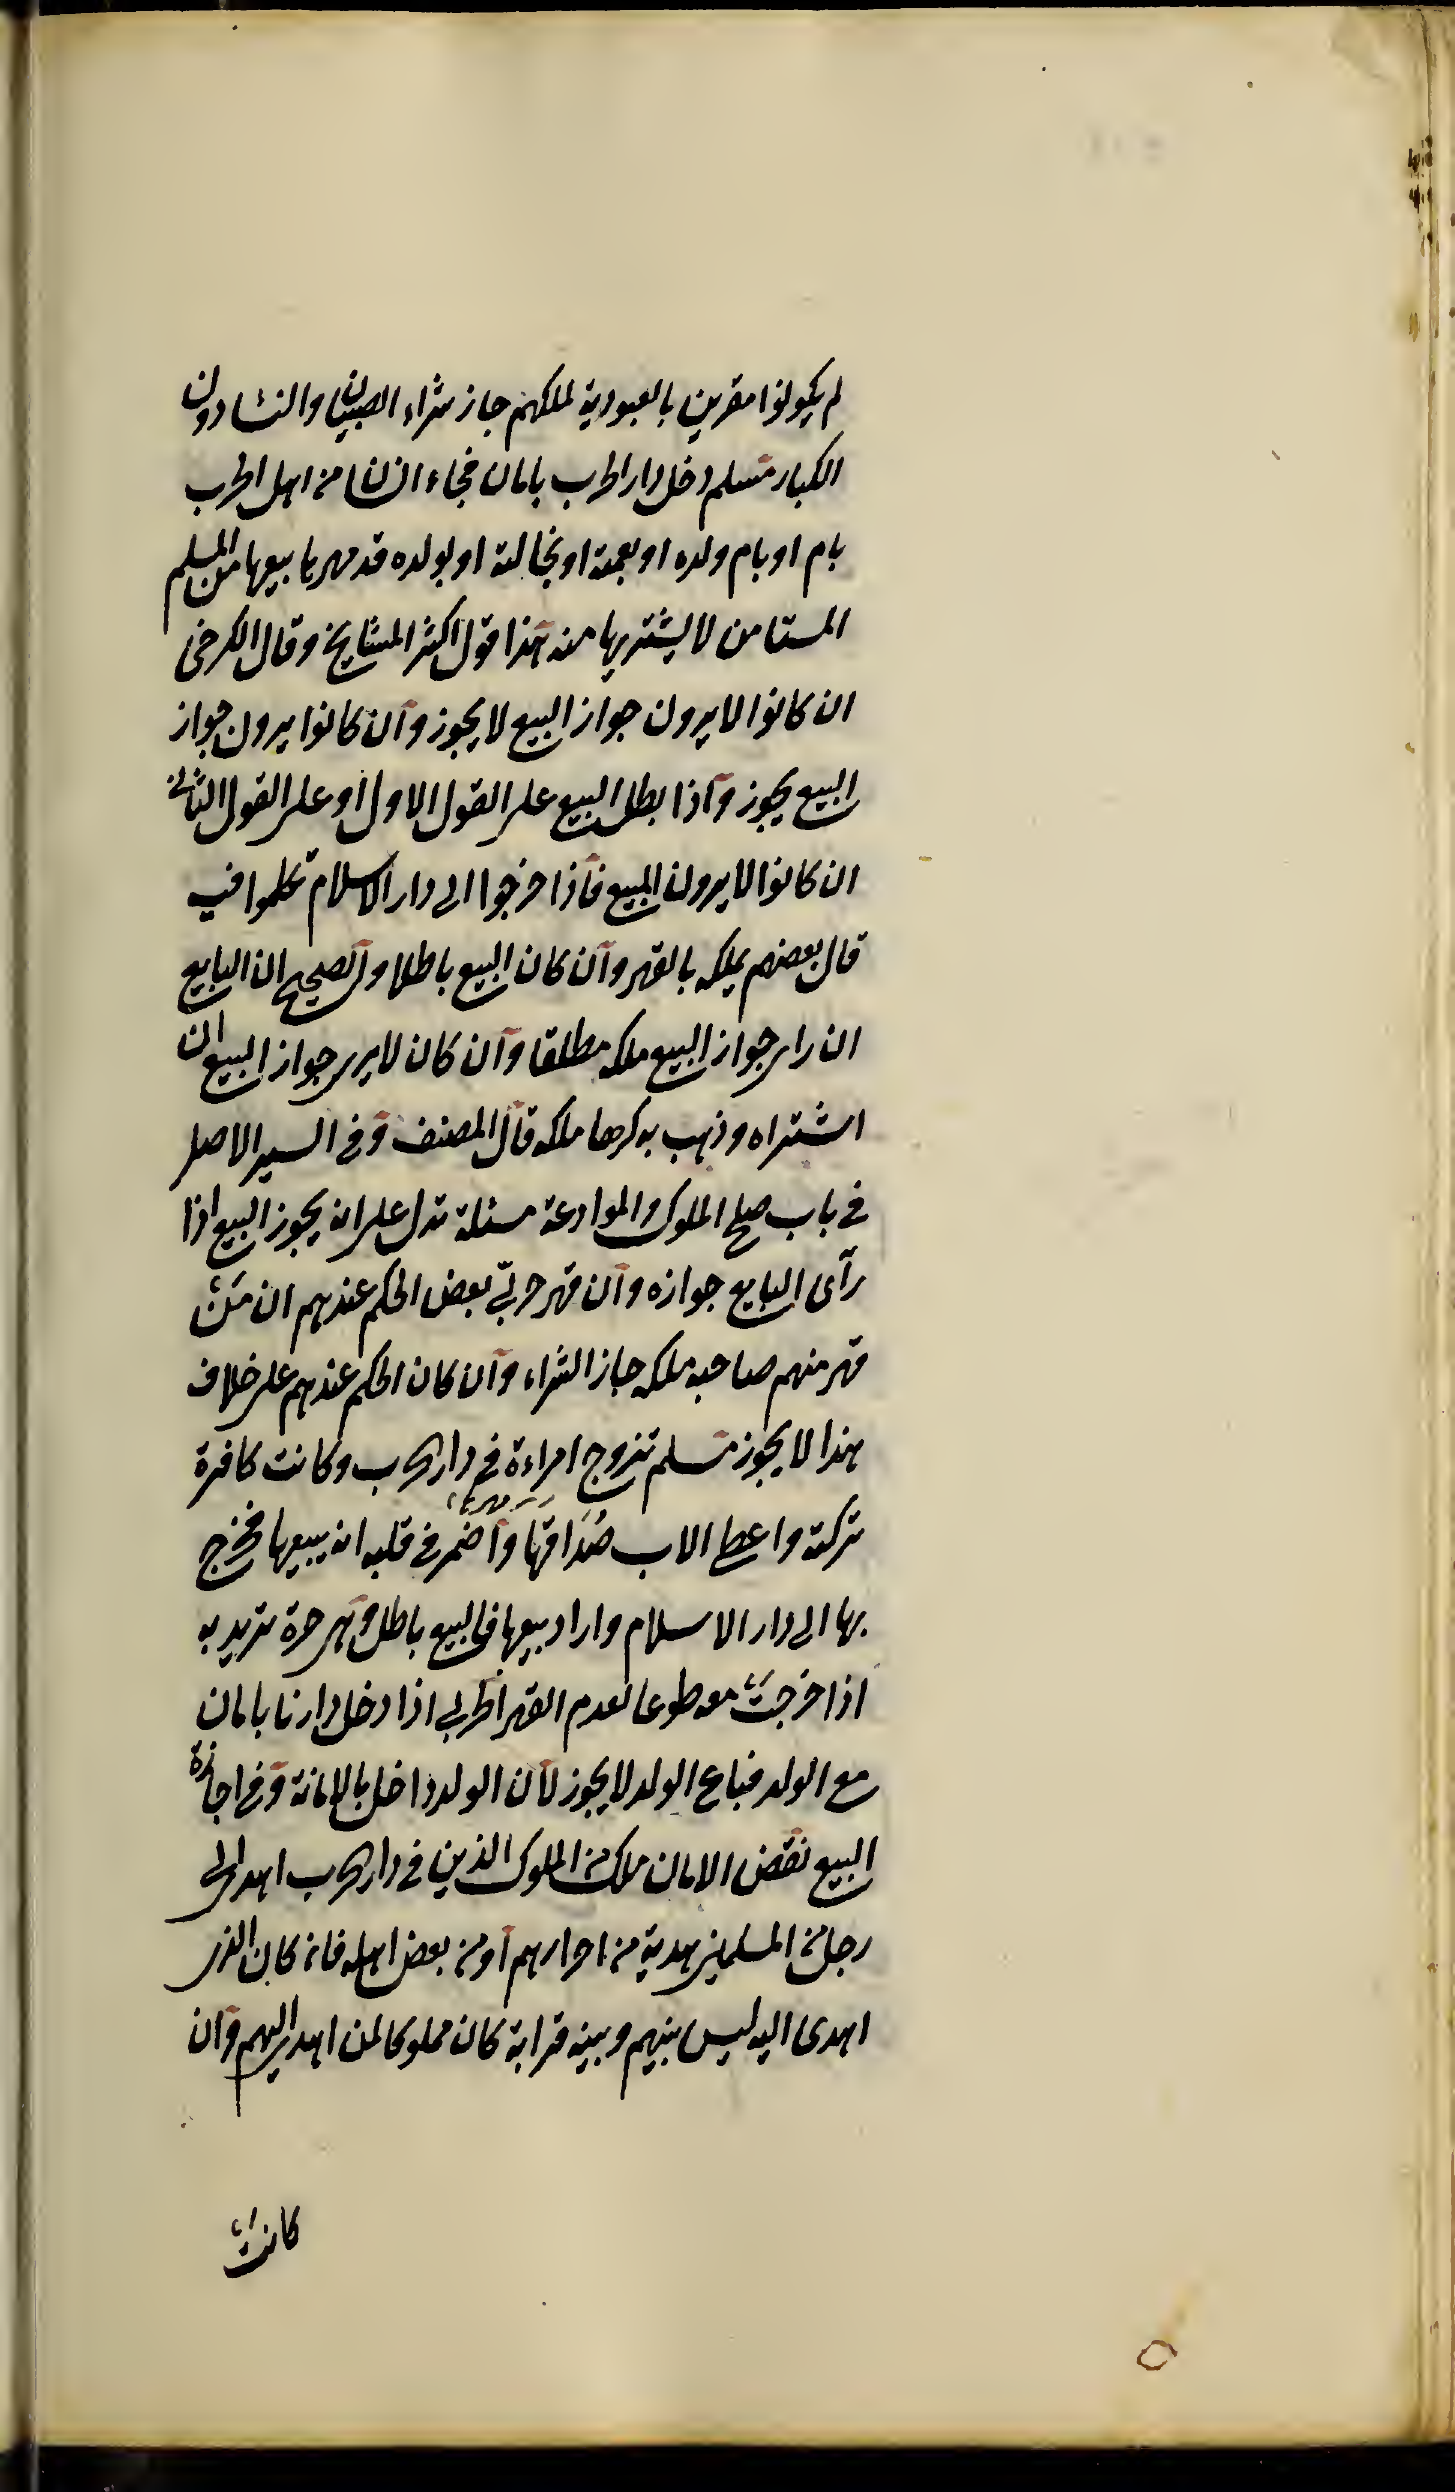 لم يكونوا مقرين بالعبودية لملكهم جاز شراء الصبيان والنساء دون
الكبار مسلم دخل دار الحرب بامان فجاء انسان من اهل الحرب
بام او بام ولده او بعمة او بخالته او بولده قد قهر يا بيعها من المسلم
المستامن لا يشتريها منه هذا قول اكثر المشايخ وقال الكرخى
ان كانوا لا يرون جواز البيع لا يجوز وان كانوا يرون جواز
البيع يجوز واذا بطل البيع على القول الاول او على القول الثانى
ان كانوا لا يرون البيع فاذا خرجوا الى دار الاسلام تكلموا فيه
قال بعضهم يملكه بالقهر وان كان البيع باطلا والصحيح ان البايع
ان راى جواز البيع ملكه مطلقا وان كان لا يرى جواز البيع ان
اشتراه وذهب به كرها ملكه قال المصنف وفى السير الاصل
فى باب صلح الملوك والموادعة مسئلة تدل على انه يجوز البيع اذا
رآى البايع جوازه وان قهر حربىّ بعض الحكم عندهم ان من
قهر منهم صاحبه ملكه جاز الشراء وان كان الحكم عندهم على خلاف
هذا لا يجوز مسلم تزوج امراءة فى دار الحرب وكانت كافرة
تركته واعطى الاب صداقها واضمر فى قلبه انه يبيعها فخرج
بها الى دار الاسلام واراد بيعها فالبيع باطل وهى حرة يريد به
اذا خرجت معه طوعا لعدم القهر الحربى اذا دخل دارنا بامان
مع الولد فباع الولد لا يجوز لان الولد داخل بالامانة وفى اجازة
البيع نقض الامان ملك من الملوك الذين فى دار الحرب اهدى الى
رجل من المسلمين هدية من احرارهم او من بعض اهله فانه كان الذى
اهدى اليه ليس بينهم وبينه قرابة كان مملوكا لمن اهدى اليهم وان
كانت